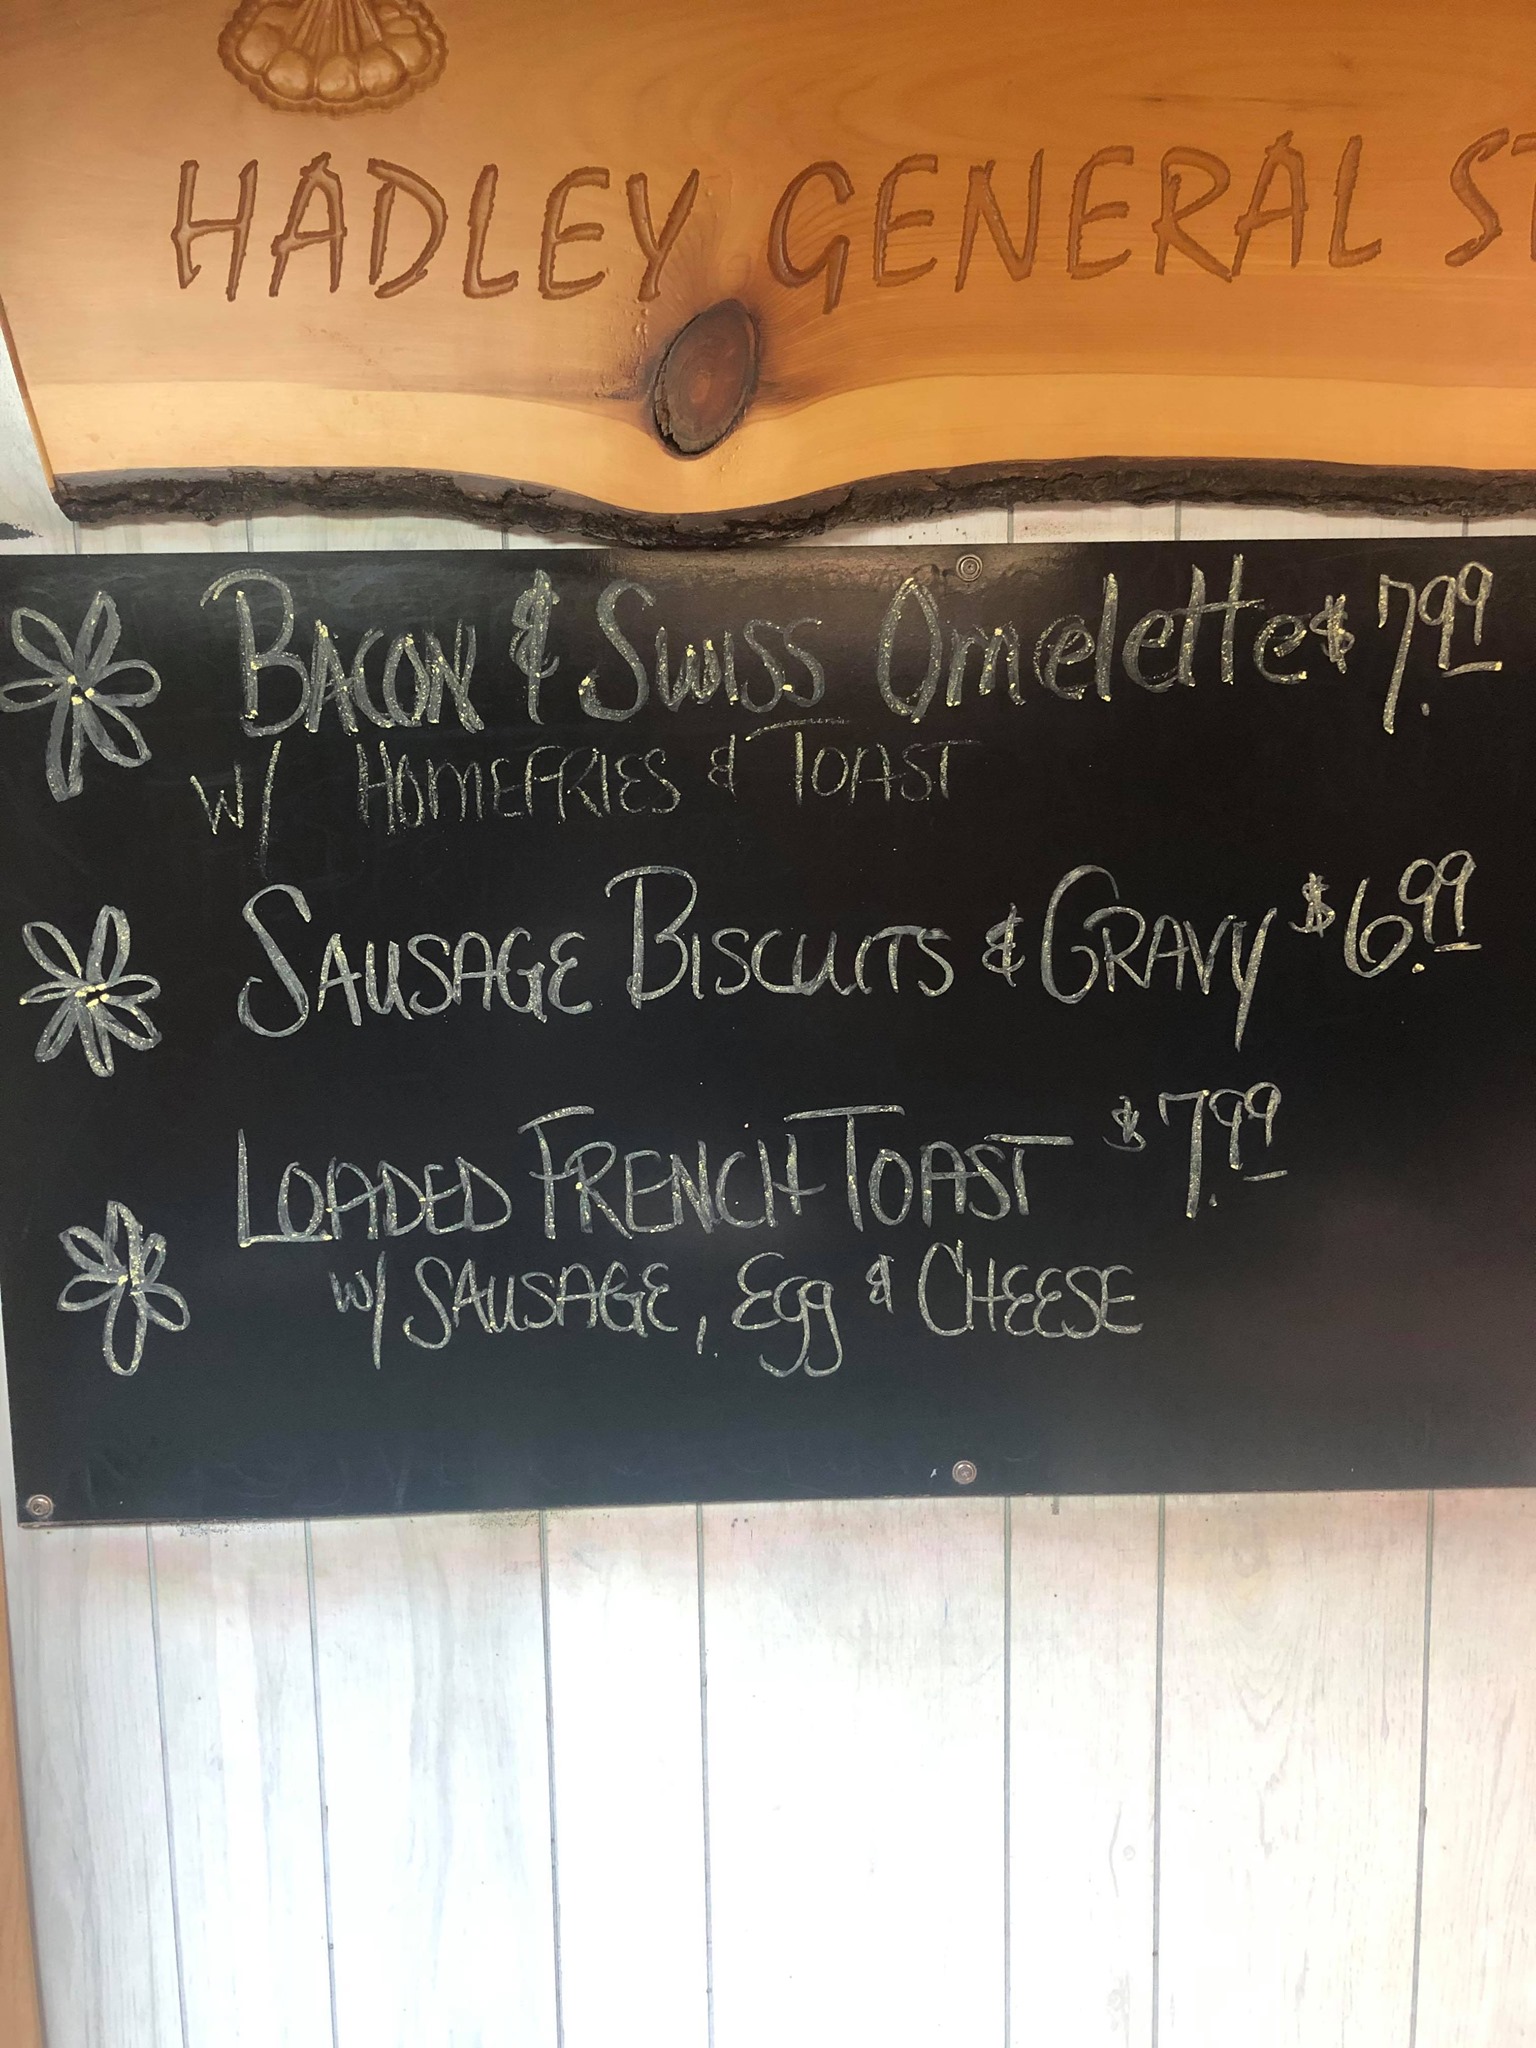 HADLEY GENERAL ST
BACON & SWISS Omelette $7.99
W/ HOMEFRIES & TOAST
SAUSAGE BISCUITS & GRAVY $6.99
LOADED FRENCH TOAST $7.99
W/ SAUSAGE, Egg & CHEESE